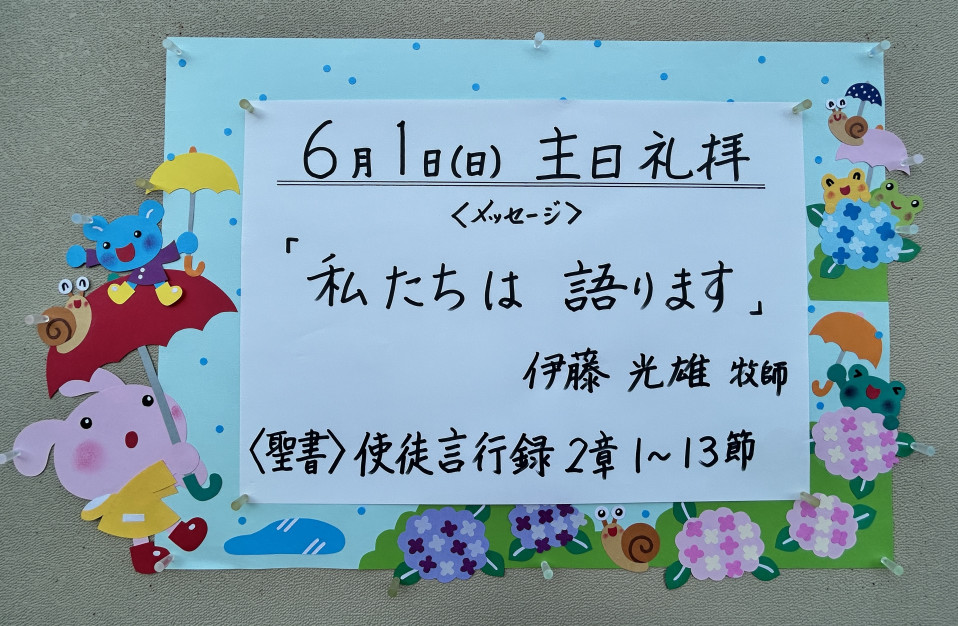 6月1日(日) 主日礼拝
〈メッセージ〉
「私たちは 語ります」
伊藤 光雄 牧師
〈聖書〉使徒言行録 2章 1~13節